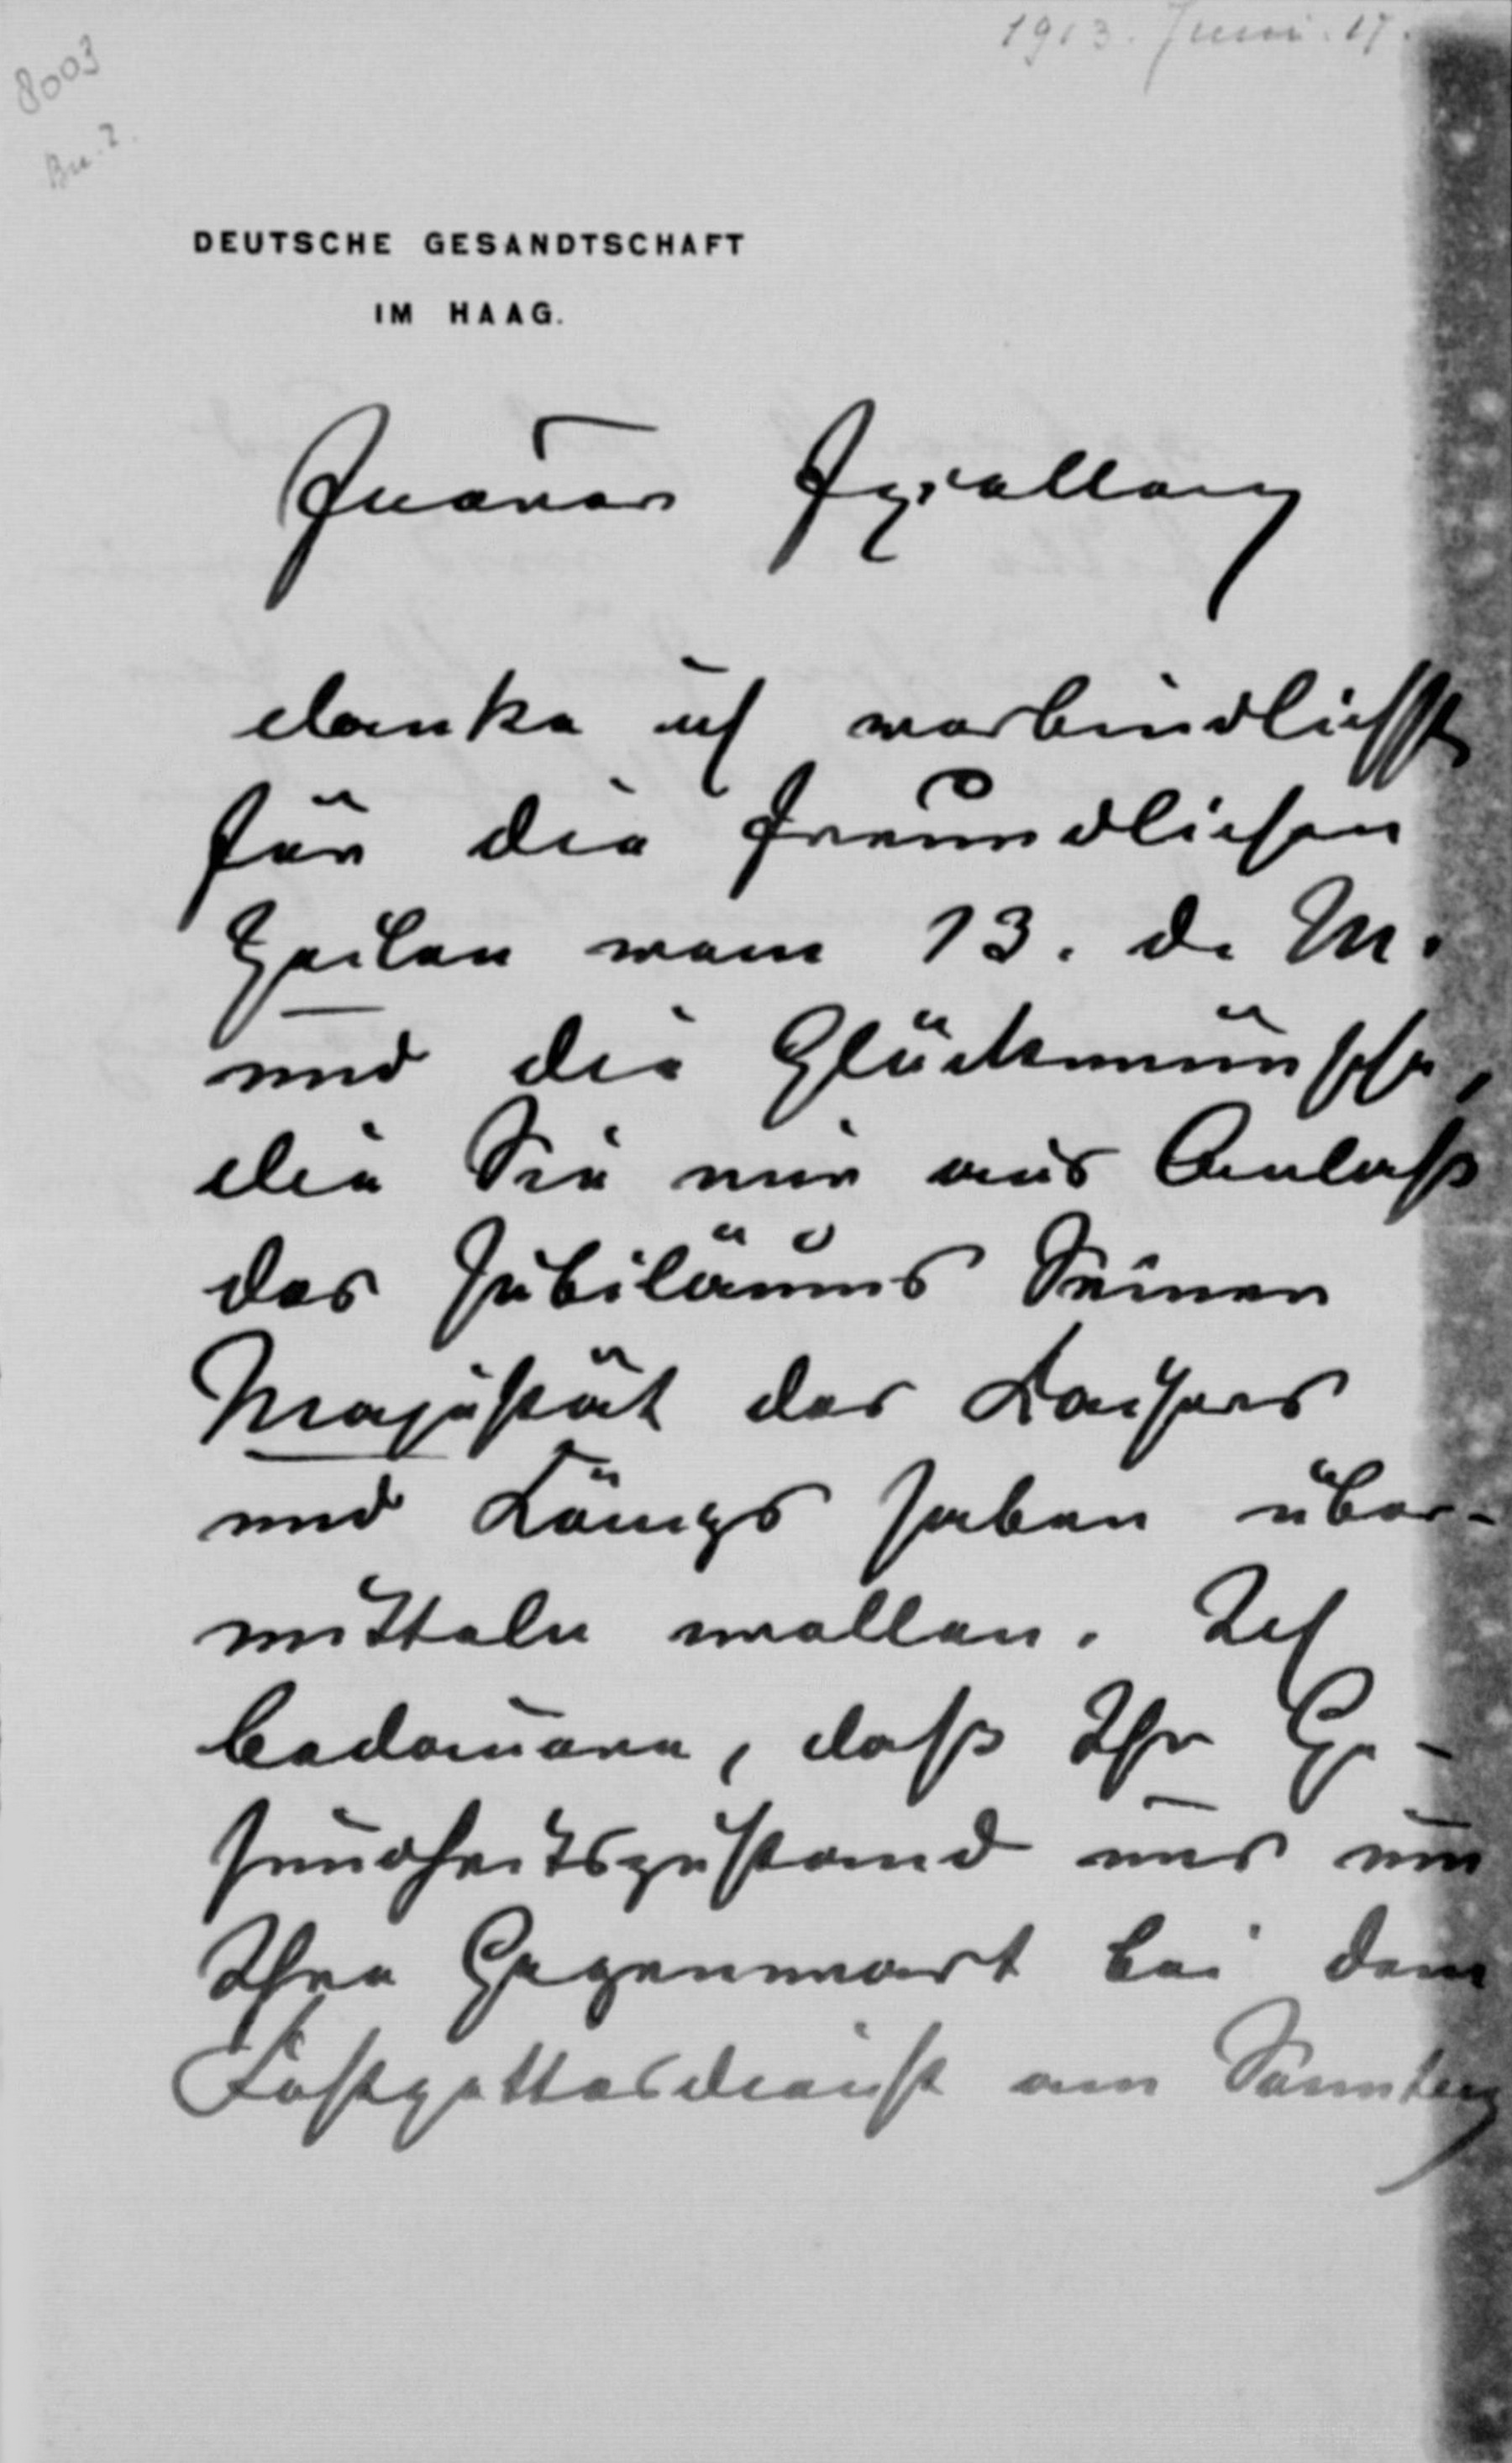 1913. Juni. 17.
8003
Bu. 2.
DEUTSCHE GESANDTSCHAFT
IM HAAG.
Euerer Exzellenz
danke ich verbindlichst
für die freundlichen
Zeilen vom 13. d. M.
und die Glückwünsche,
die Sie mir aus Anlaß
des Jubiläums Seiner
Majestät des Kaisers
und Königs haben über-
mitteln wollen. Ich
bedauere, daß Ihr Ge-
sundheitszustand uns um
Ihre Gegenwart bei dem
Festgottesdienst am Sonntag